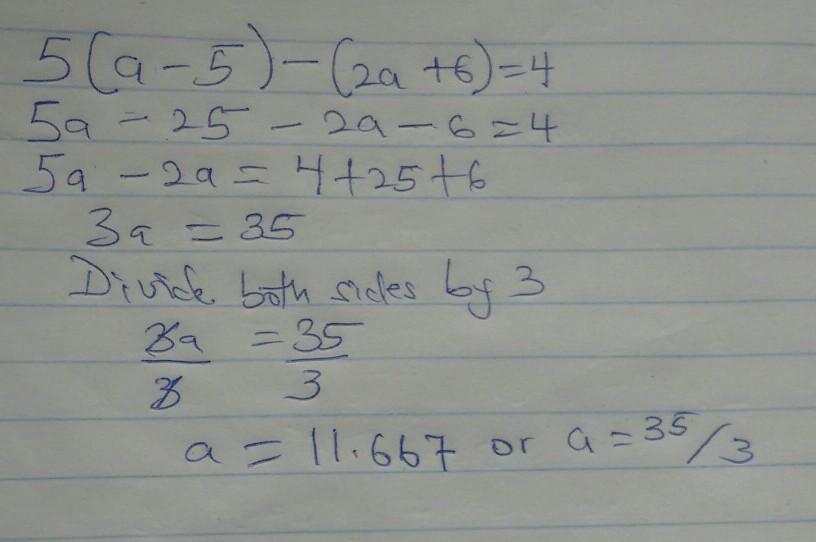 5(a-5)-(2a+6)=4
5a-25-2a-6=4
5a-2a=4+25+6
3a=35
Divide both sides by 3
3a/3=35/3
a=11.667 or a=35/3